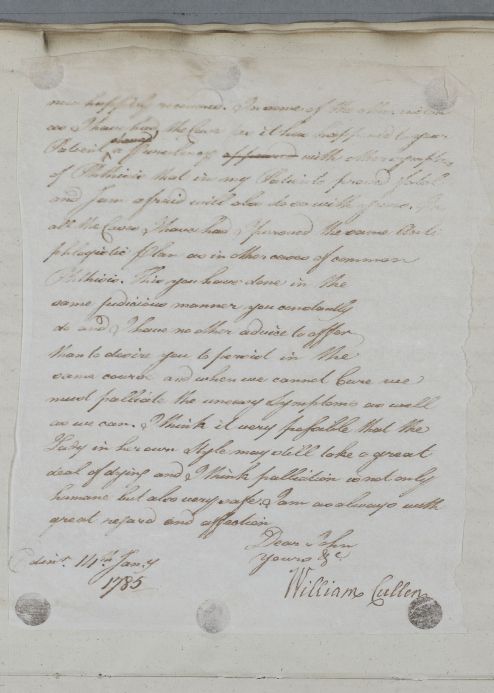 now happily recovered. In some of the other
as I have had, the Case as it has happened to your
Patient, a Purulency appeared with other symptoms
of Phthisis that in my Patients proved fatal
and I am afraid will also do so with yours. In
all the Cases I have had I pursued the same Anti
phlogistic Plan as in other cases of common
Phthisis. This you have done in the
same judicious manner you constantly
do and I have no other advice to offer
than to desire you to persist in the
same course and when we cannot Cure we
must palliate the uneasy Symptoms as well
as we can. I think it very possible that the
Lady in her own Style may still take a great
deal of dying and I think palliation is not only
humane but also very safe. I am as always with
great regard and affection
Dear John
yours &c
Edinr. 14th Jany
1785
William Cullen